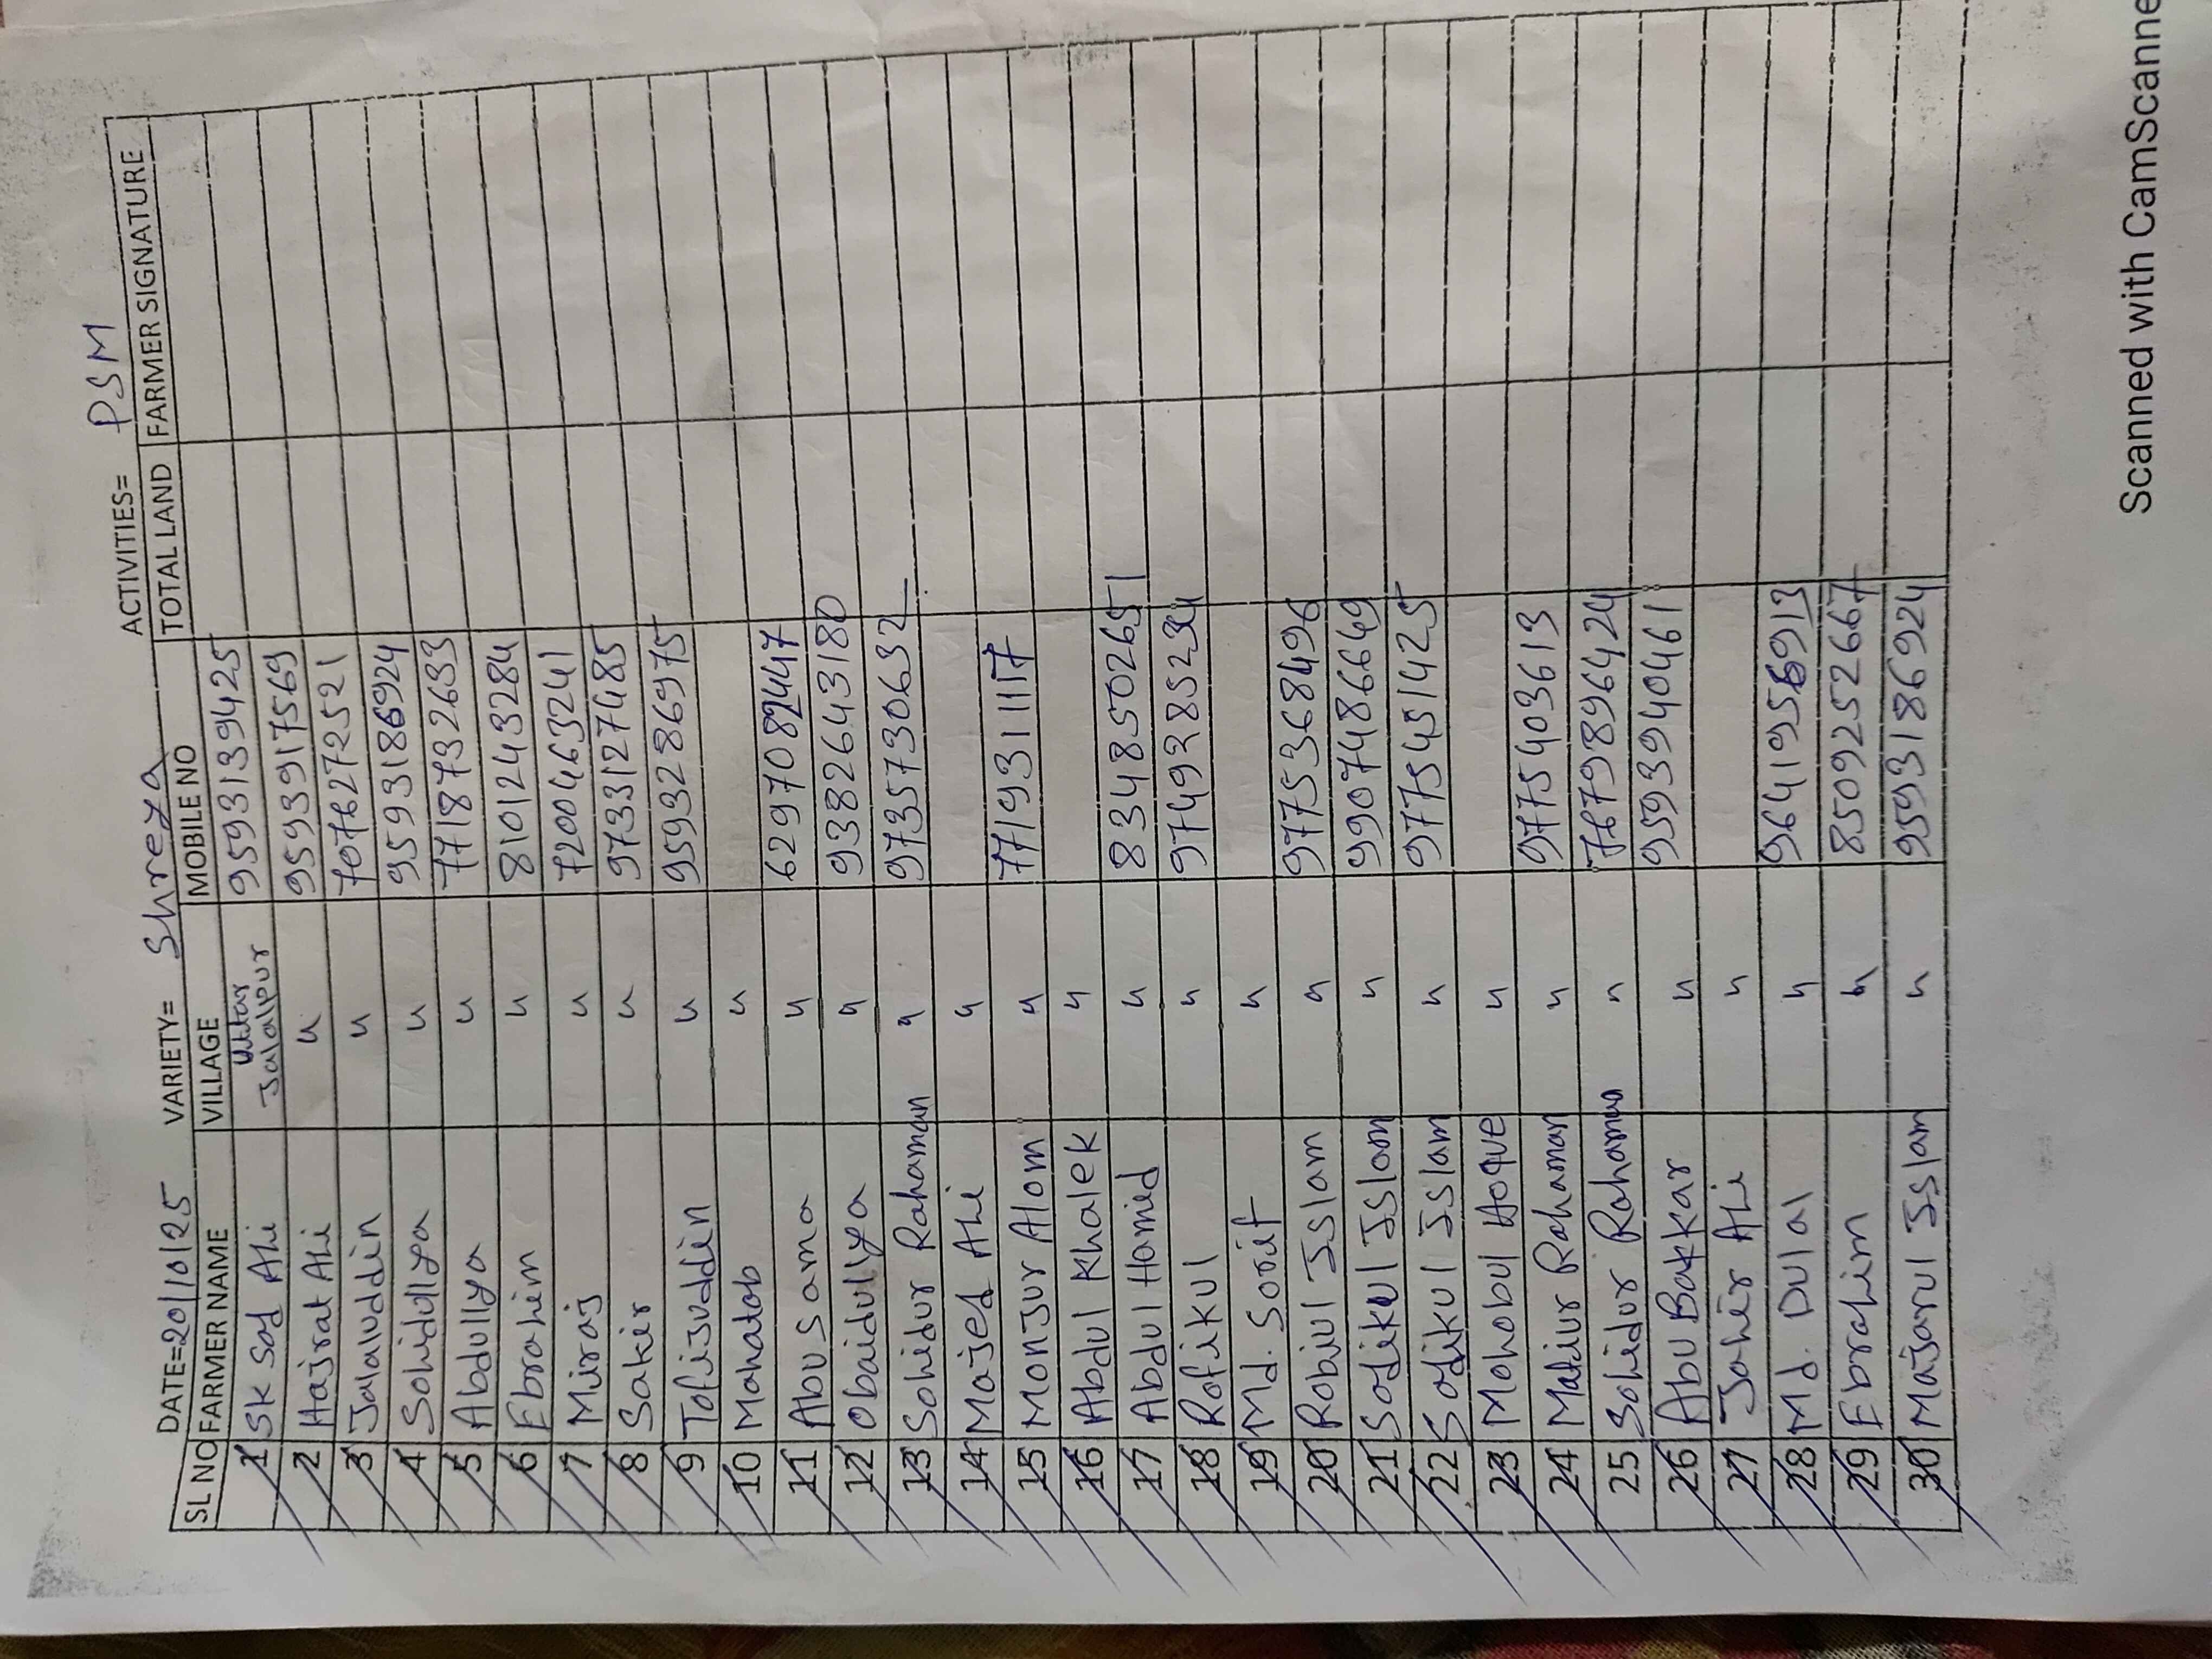 DATE=20/10/25 VARIETY= Shreya ACTIVITIES= PSM
SL NO FARMER NAME VILLAGE MOBILE NO TOTAL LAND FARMER SIGNATURE
1 SK Sad Ali Uttar Jalalpur 9593139425
2 Hajrat Ali " 9593917569
3 Jalaluddin " 7076272521
4 Sohidullya " 9593186924
5 Abdullya " 7718732633
6 Ebrahim " 8101243284
7 Miraj " 7200463241
8 Sakir " 9733127485
9 Tofijuddin " 9593286975
10 Mahatab "
11 Abu Sama " 6297082447
12 Obaidullya " 9382643180
13 Sohidur Rahaman " 9735730632
14 Majed Ali "
15 Monjur Alom " 7719311117
16 Abdul Khalek "
17 Abdul Hamied " 8348502651
18 Rofikul " 974928523
19 Md. Sorif "
20 Robiul Islam " 9775368496
21 Sofikul Islam " 9907486649
22 Sofikul Islam " 9775451425
23 Mohobul Hoque "
24 Mafiur Rahaman " 9775403613
25 Sohidur Rahaman " 7679896424
26 Abu Bakkar " 9593940461
27 Jahir Ali "
28 Md. Dulal " 9641956913
29 Ebrahim " 8509252667
30 Majarul Islam " 9593186924
Scanned with CamScanne